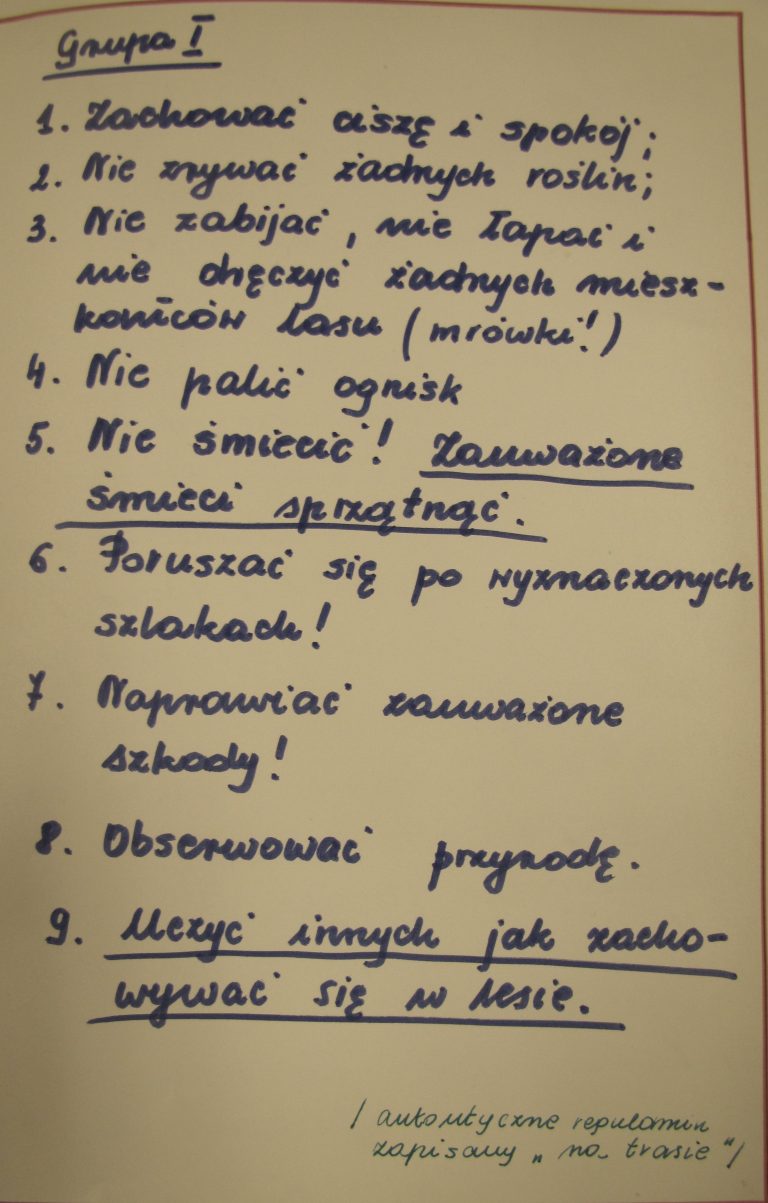 Grupa I
1. Zachować ciszę i spokój;
2. Nie zrywać żadnych roślin;
3. Nie zabijać, nie łapać i
nie dręczyć żadnych miesz-
kańców lasu (mrówki!)
4. Nie palić ognisk
5. Nie śmiecić! Zauważone
śmieci sprzątnąć.
6. Poruszać się po wyznaczonych
szlakach!
7. Naprawiać zauważone
szkody!
8. Obserwować przyrodę.
9. Uczyć innych jak zacho-
wywać się w lesie.
/ autentyczne regulamin
zapisany „na trasie"/